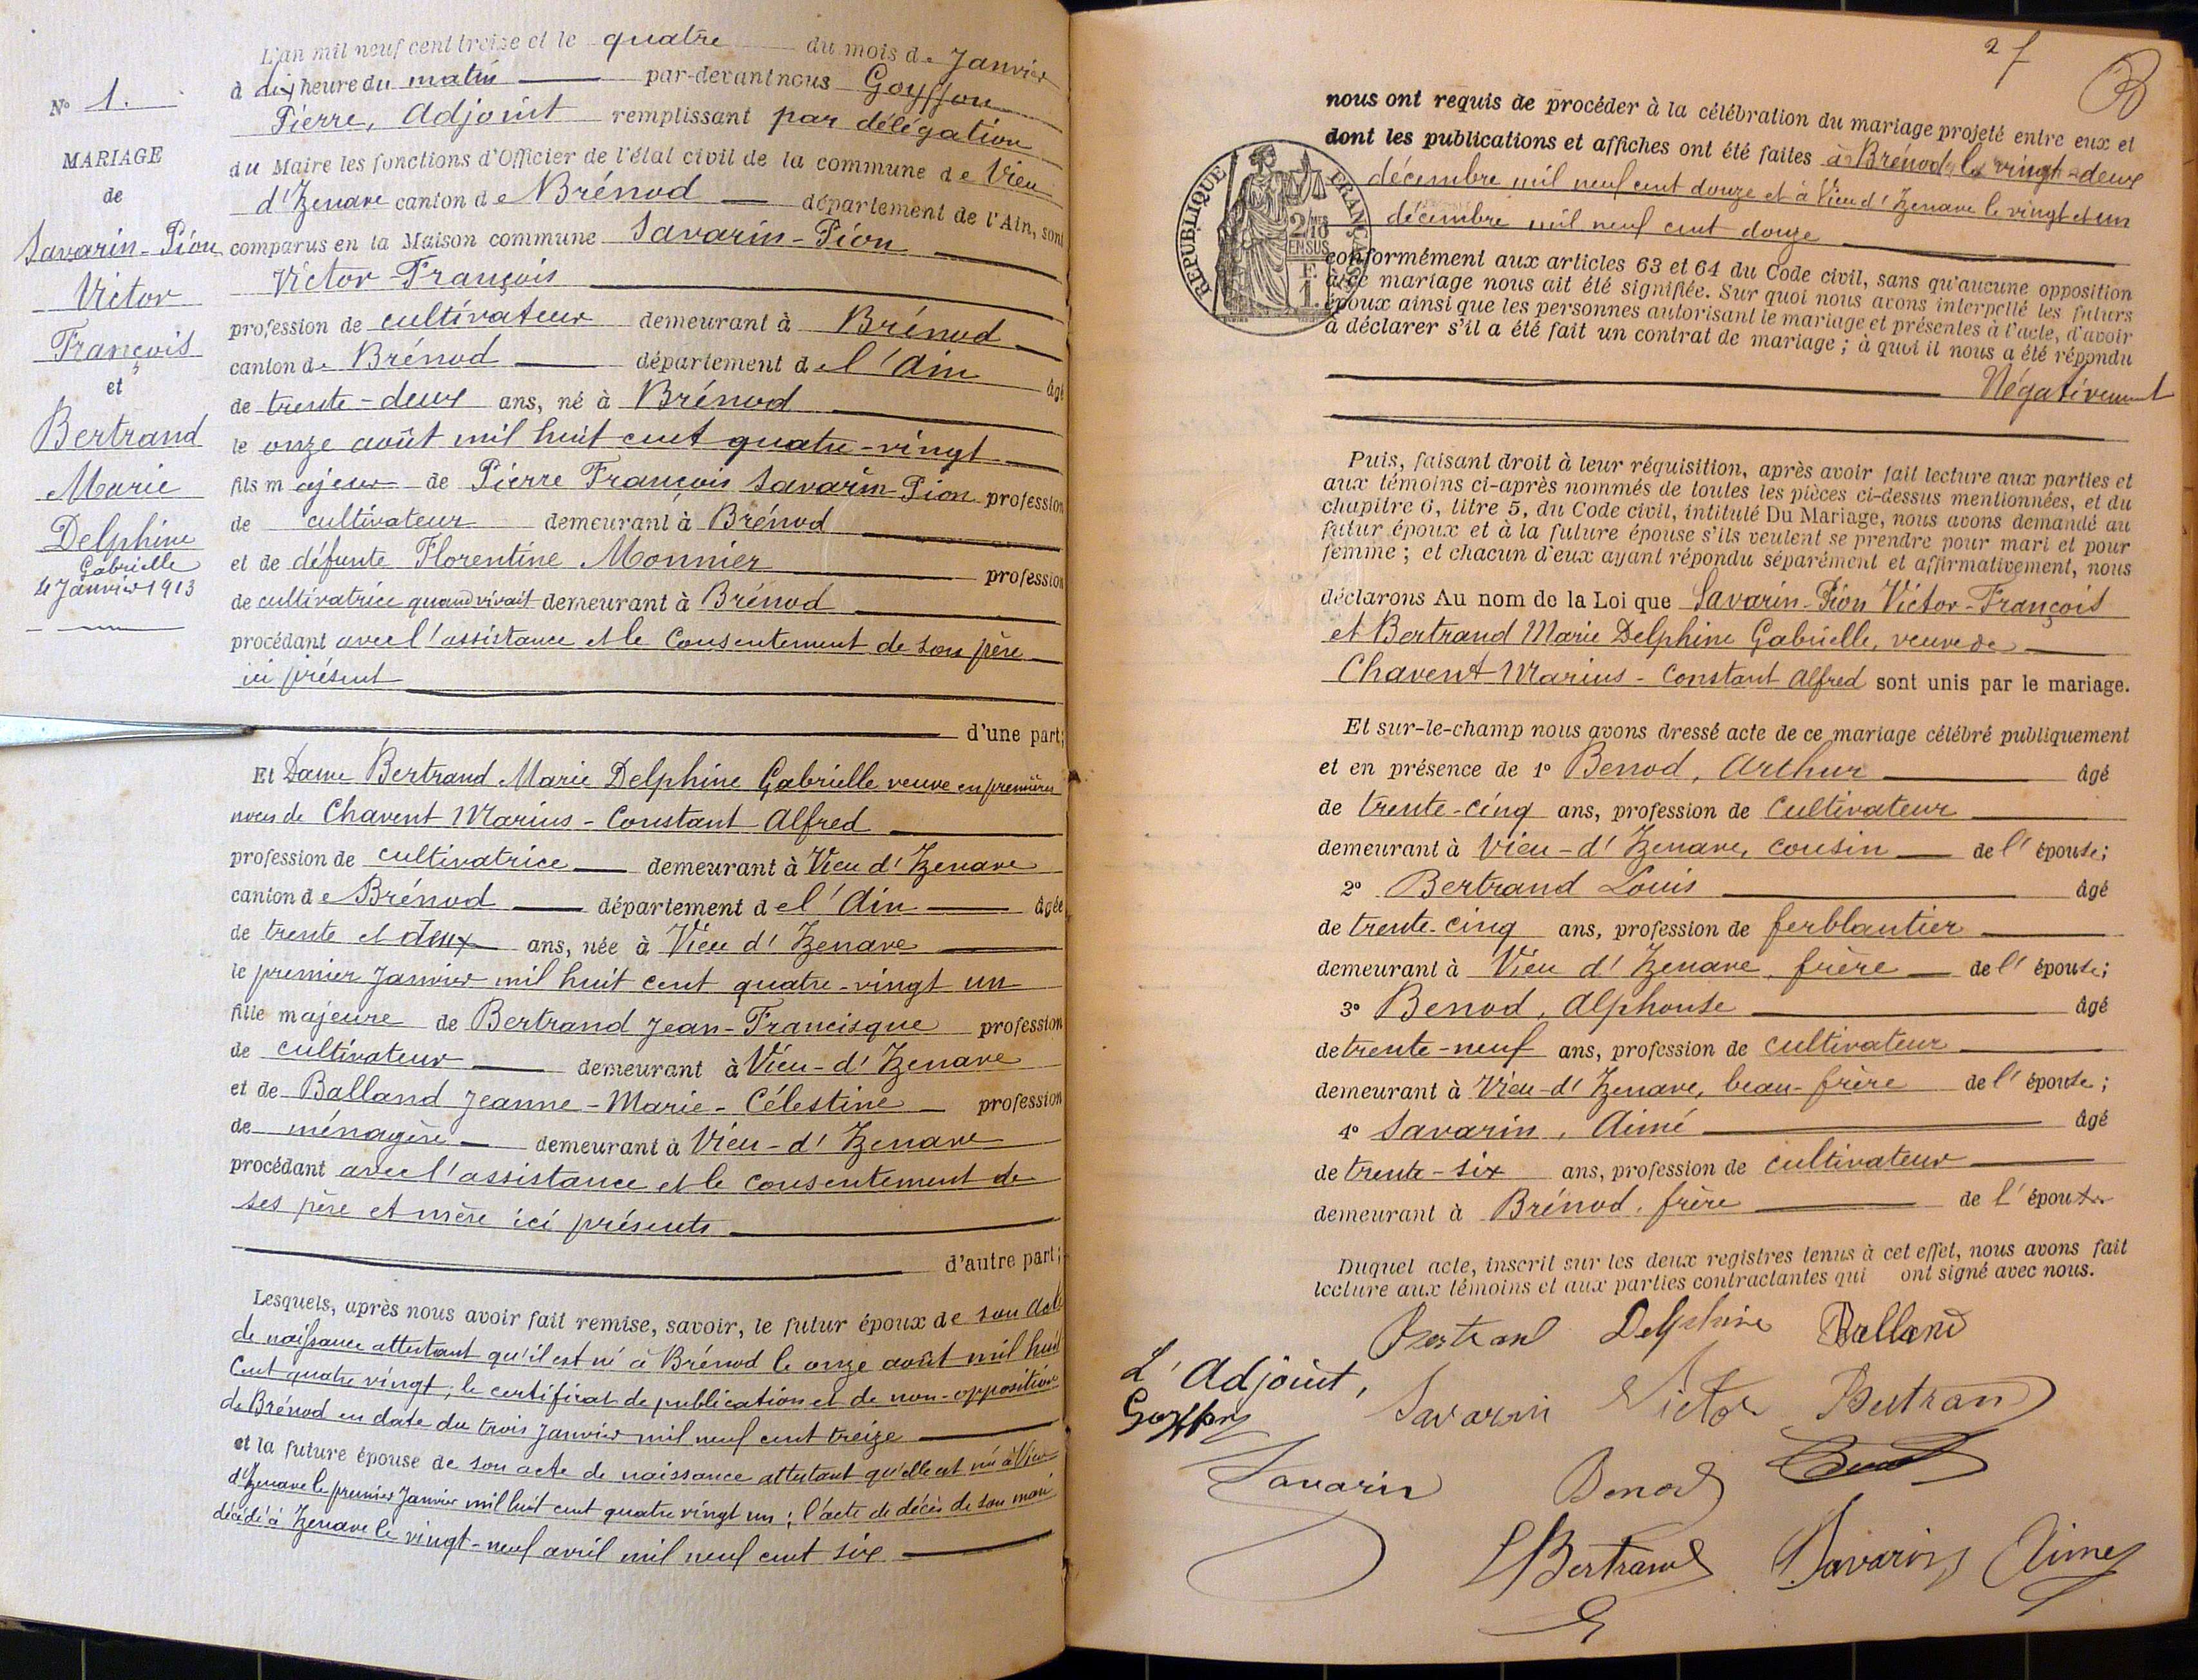 L'an mil neuf cent treize et le quatre du mois de Janvier
à dix heure du matin par-devant nous Goyffon
Pierre, Adjoint remplissant par délégation
du Maire les fonctions d'Officier de l'état civil de la commune de Vieu
d'Izenave canton de Brénod département de l'Ain, sont
comparus en la Maison commune Savarin-Pion
Victor-François
profession de cultivateur demeurant à Brénod
canton de Brénod département de l'Ain âgé
de trente-deux ans, né à Brénod
le onze août mil huit cent quatre-vingt
fils majeur de Pierre François Savarin Pion profession
de cultivateur demeurant à Brénod
et de défunte Florentine Monnier profession
de cultivatrice quand vivait demeurant à Brénod
procédant avec l'assistance et le Consentement de son père
ici présent
d'une part;
Et Dame Bertrand Marie Delphine Gabrielle veuve en premières
noces de Chavent Marius-Constant Alfred
profession de cultivatrice demeurant à Vieu d'Izenave
canton de Brénod département de l'Ain âgée
de trente et deux ans, née à Vieu d'Izenave
le premier Janvier mil huit cent quatre-vingt un
fille majeure de Bertrand Jean-Francisque profession
de cultivateur demeurant à Vieu-d'Izenave
et de Balland Jeanne-Marie-Célestine profession
de ménagère demeurant à Vieu-d'Izenave
procédant avec l'assistance et le consentement de
ses père et mère ici présents
d'autre part;
Lesquels, après nous avoir fait remise, savoir, le futur époux de son acte
de naissance attestant qu'il est né à Brénod le onze août mil huit
cent quatre vingt; le certificat de publication et de non-opposition
de Brénod en date du trois Janvier mil neuf cent treize
et la future épouse de son acte de naissance attestant qu'elle est née à Vieu
d'Izenave le premier Janvier mil huit cent quatre vingt un; l'acte de décès de son mari
décédé à Izenave le vingt-neuf avril mil neuf cent six
N° 1.
MARIAGE
de
Savarin-Pion
Victor
François
et
Bertrand
Marie
Delphine
Gabrielle
4 Janvier 1913
27
nous ont requis de procéder à la célébration du mariage projeté entre eux et
dont les publications et affiches ont été faites à Brénod le vingt-deux
décembre mil neuf cent douze et à Vieu d'Izenave le vingt et un
décembre mil neuf cent douze
conformément aux articles 63 et 64 du Code civil, sans qu'aucune opposition
à ce mariage nous ait été signifiée. Sur quoi nous avons interpellé les futurs
époux ainsi que les personnes autorisant le mariage et présentes à l'acte, d'avoir
à déclarer s'il a été fait un contrat de mariage; à quoi il nous a été répondu
Négativement
RÉPUBLIQUE FRANÇAISE
2/10
EN SUS
F.
1.
Puis, faisant droit à leur réquisition, après avoir fait lecture aux parties et
aux témoins ci-après nommés de toutes les pièces ci-dessus mentionnées, et du
chapitre 6, titre 5, du Code civil, intitulé Du Mariage, nous avons demandé au
futur époux et à la future épouse s'ils veulent se prendre pour mari et pour
femme; et chacun d'eux ayant répondu séparément et affirmativement, nous
déclarons Au nom de la Loi que Savarin-Pion Victor-François
et Bertrand Marie Delphine Gabrielle, veuve de
Chavent Marius-Constant Alfred sont unis par le mariage.
Et sur-le-champ nous avons dressé acte de ce mariage célébré publiquement
et en présence de 1° Benod, Arthur âgé
de trente-cinq ans, profession de Cultivateur
demeurant à Vieu-d'Izenave, cousin de l'épouse;
2° Bertrand Louis âgé
de trente-cinq ans, profession de ferblantier
demeurant à Vieu d'Izenave, frère de l'épouse;
3° Benod, Alphonse âgé
de trente-neuf ans, profession de cultivateur
demeurant à Vieu-d'Izenave, beau-frère de l'épouse;
4° Savarin, Aimé âgé
de trente-six ans, profession de cultivateur
demeurant à Brénod, frère de l'époux
Duquel acte, inscrit sur les deux registres tenus à cet effet, nous avons fait
lecture aux témoins et aux parties contractantes qui ont signé avec nous.
Bertrand Delphine Balland
L'Adjoint,
Goyffon
Savarin Victor Bertrand
Savarin Benod
L Bertrand Savarin Aimé